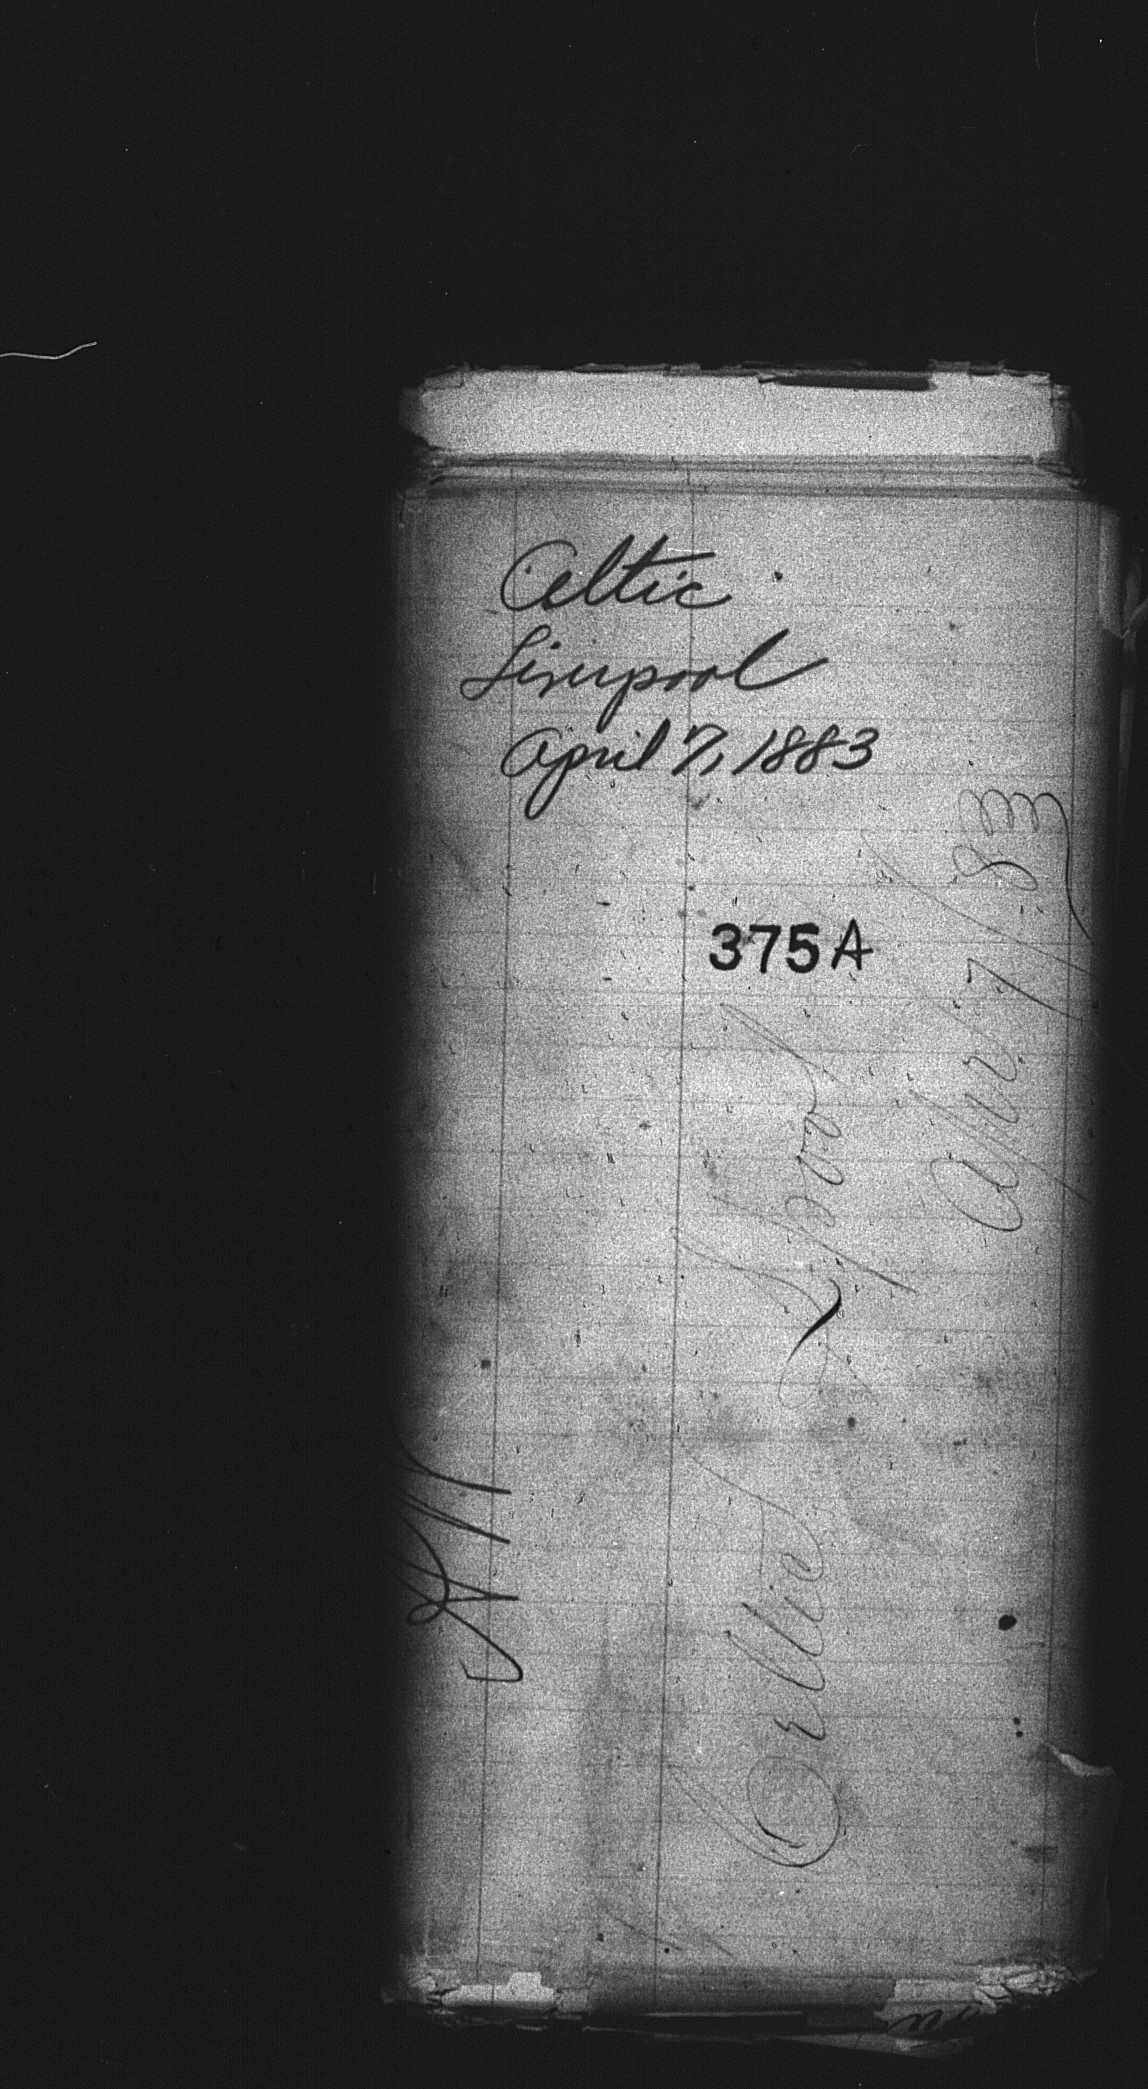 Celtic
Liverpool
April 7, 1883
375A
Celtic
L'pool
Apr 7/83